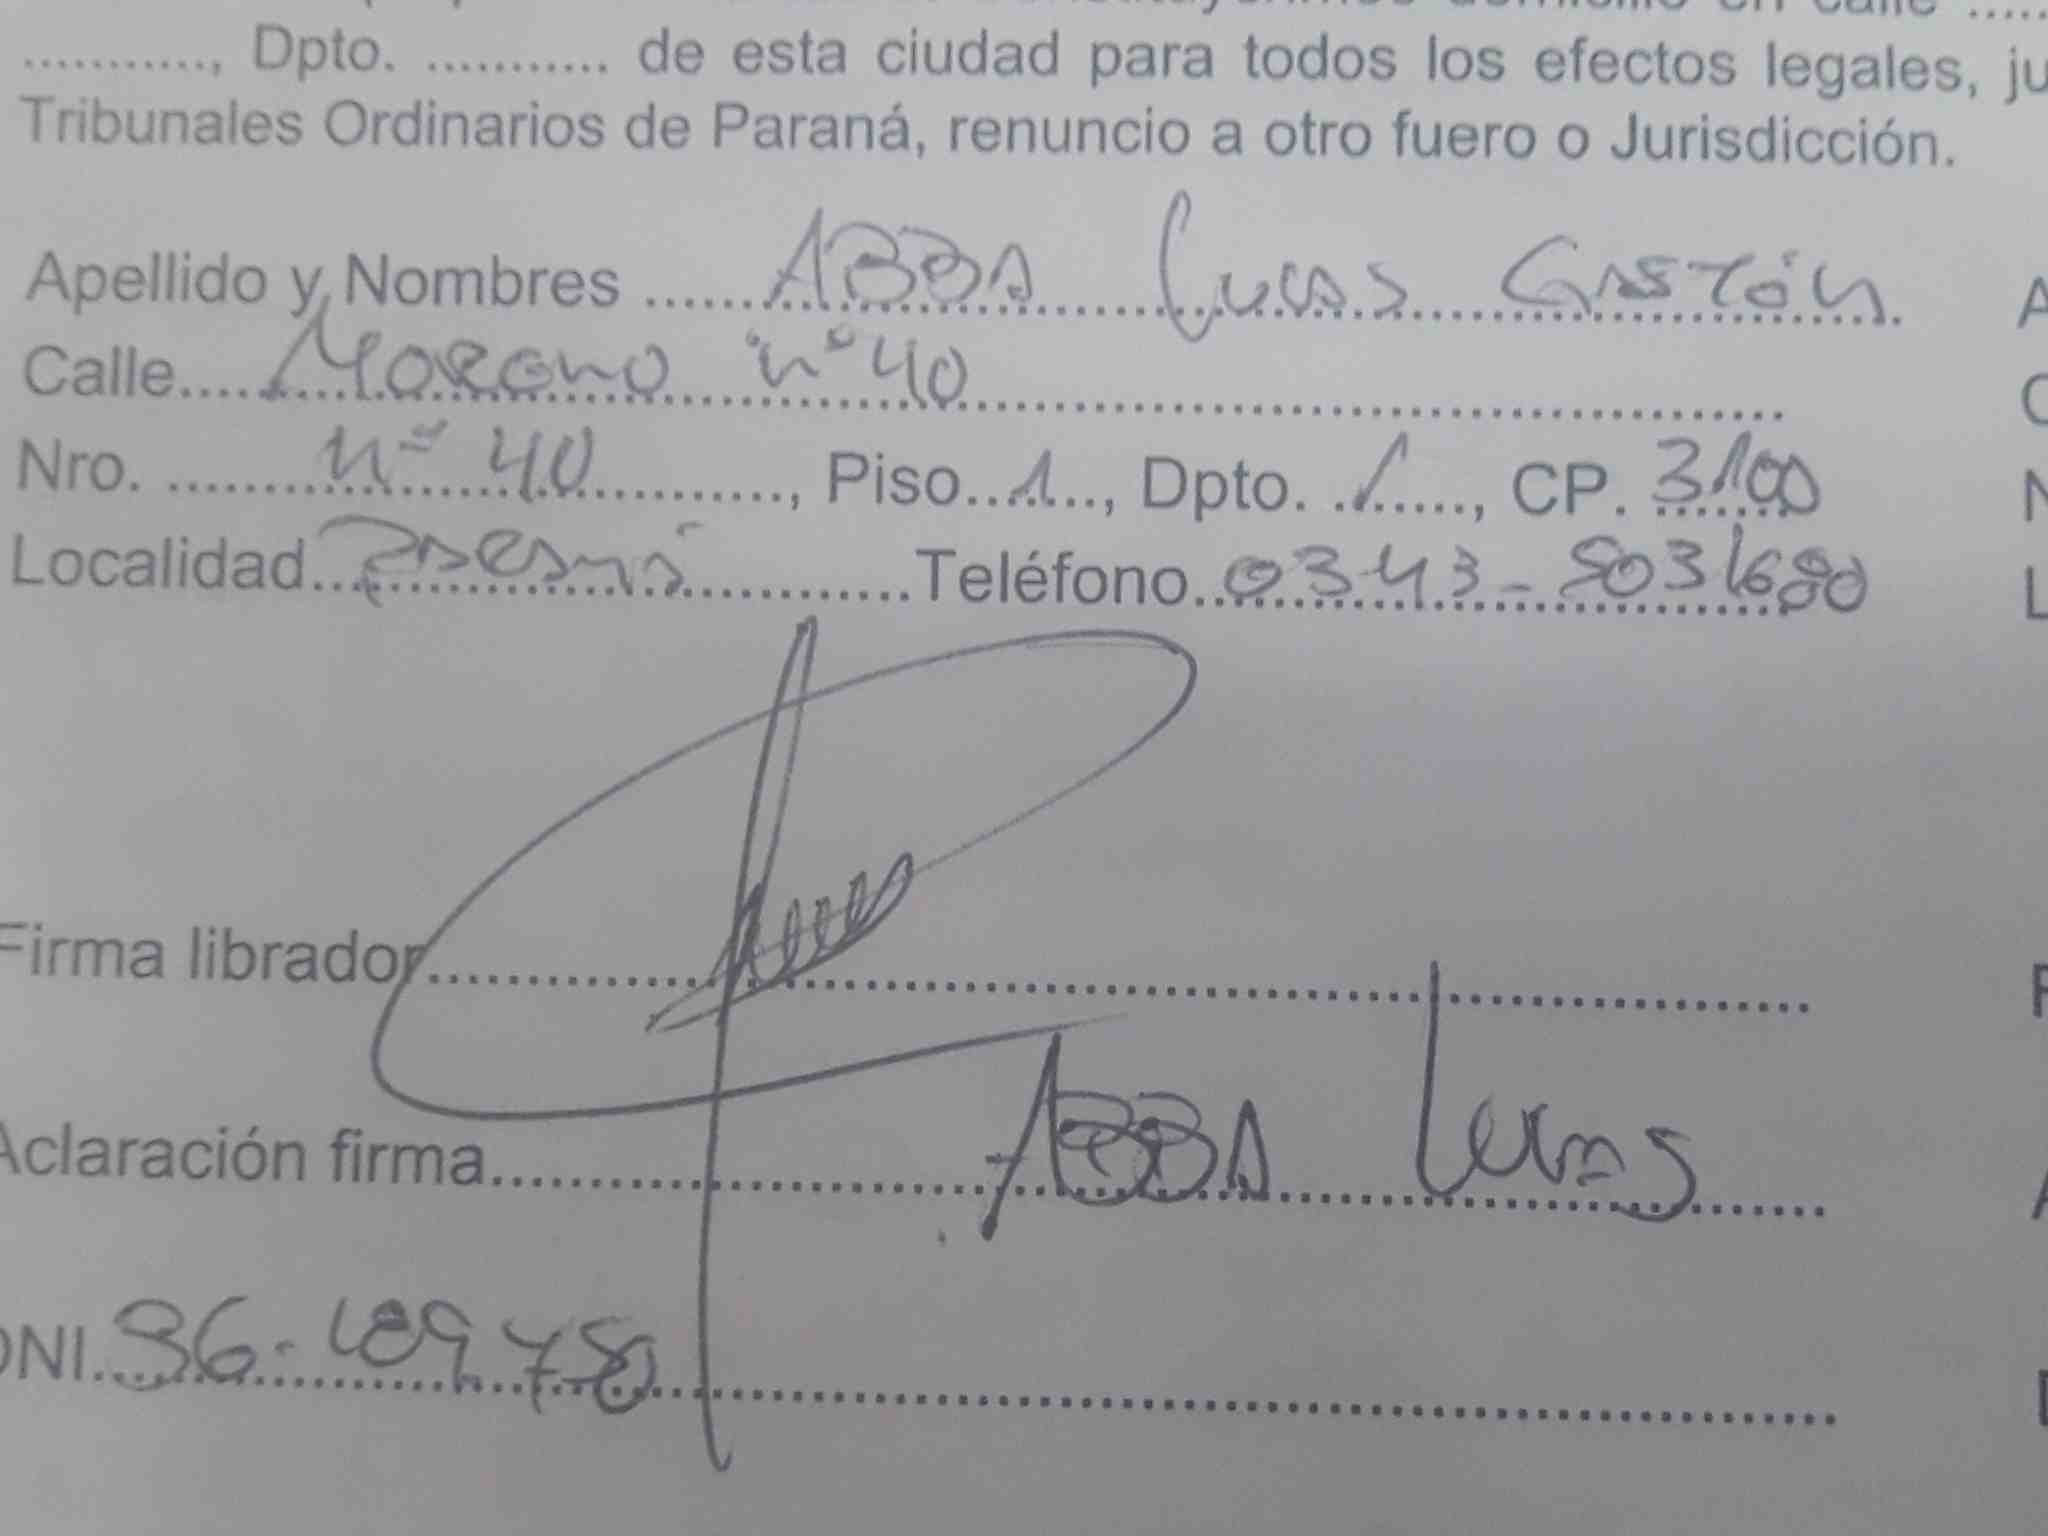 ..........., Dpto. ........... de esta ciudad para todos los efectos legales, ju
Tribunales Ordinarios de Paraná, renuncio a otro fuero o Jurisdicción.
Apellido y Nombres ...... ABBA Lucas Gastón
Calle..... Moreno n° 40
Nro. ...... n° 40 ......, Piso...1..., Dpto. ../....., CP. 3100
Localidad... Paraná ......Teléfono.. 0343-5031680
Firma librador..........
Aclaración firma.......... ABBA Lucas
DNI. 36.189.750